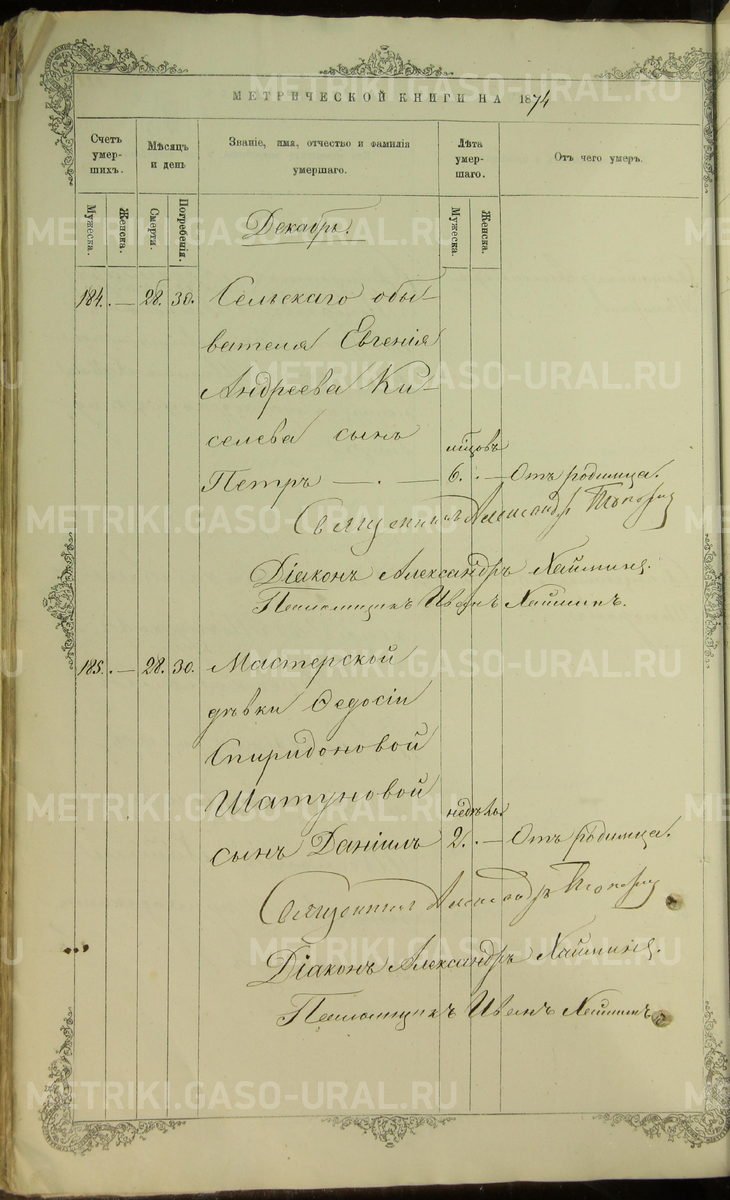 МЕТРИЧЕСКОЙ КНИГИ НА 1874
Счетъ умер-шихъ.
Мѣсяцъ и день
Званіе, имя, отчество и фамилія умершаго.
Лѣта умер-шаго.
Отъ чего умеръ.
Мужеска.
Женска.
Смерти.
Погребенія.
Мужеска.
Женска.
Декабрь.
184. — 28. 30. Сельскаго обы-
вателя Евгенія
Андреева Ки-
селева сынъ
мѣсцовъ
Петръ — . — 6. . — Отъ родимца.
Священникъ Александръ
Діаконъ Александръ Хайминъ.
Псаломщикъ Иванъ Хайминъ.
185. — 28. 30. Мастерской
дѣвки Ѳедосіи
Спиридоновой
Шатуновой
недѣль
сынъ Даніилъ 2. . — Отъ родимца.
Священникъ Александръ
Діаконъ Александръ Хайминъ.
Псаломщикъ Иванъ Хайминъ.
METRIKI.GASO-URAL.RU